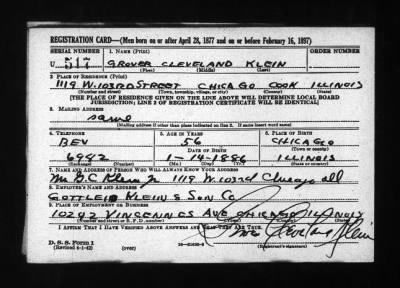 REGISTRATION CARD—(Men born on or after April 28, 1877 and on or before February 16, 1897)
SERIAL NUMBER 1. NAME (Print) ORDER NUMBER
U 517 GROVER CLEVELAND KLEIN
(First) (Middle) (Last)
2. PLACE OF RESIDENCE (Print)
1119 W. 103RD STREET CHICAGO COOK ILLINOIS
(Number and street) (Town, township, village, or city) (County) (State)
[THE PLACE OF RESIDENCE GIVEN ON THE LINE ABOVE WILL DETERMINE LOCAL BOARD
JURISDICTION; LINE 2 OF REGISTRATION CERTIFICATE WILL BE IDENTICAL]
3. MAILING ADDRESS
same
[Mailing address if other than place indicated on line 2. If same insert word same]
4. TELEPHONE 5. AGE IN YEARS 6. PLACE OF BIRTH
BEV 56 CHICAGO
DATE OF BIRTH (Town or county)
6982 1-14-1886 ILLINOIS
(Exchange) (Number) (Mo.) (Day) (Yr.) (State or country)
7. NAME AND ADDRESS OF PERSON WHO WILL ALWAYS KNOW YOUR ADDRESS
G.C. Klein Jr 1119 W. 103rd Chicago Ill
8. EMPLOYER'S NAME AND ADDRESS
GOTTLEIB KLEIN & SON CO.
9. PLACE OF EMPLOYMENT OR BUSINESS
10282 VINCENNES AVE CHICAGO ILLINOIS
(Number and street or R. F. D. number) (Town) (County) (State)
I AFFIRM THAT I HAVE VERIFIED ABOVE ANSWERS AND THAT THEY ARE TRUE.
D. S. S. Form 1
(Revised 4-1-42) Grover Cleveland Klein
(Registrant's signature)